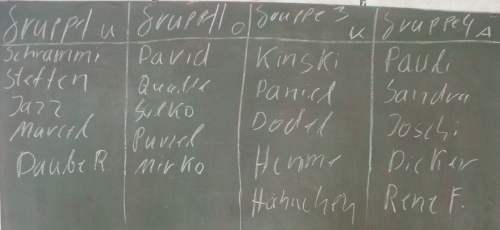 Gruppe 1 u Gruppe 11 O Gruppe 3 K Gruppe 4 A
Schrammi David Kinski Pauli
Steffen Qualle Daniel Sandra
Jazz Silko Dodel Joschi
Marcel Purzel Henne Dicker
Daube R. Mirko Hähnchen Rene F.